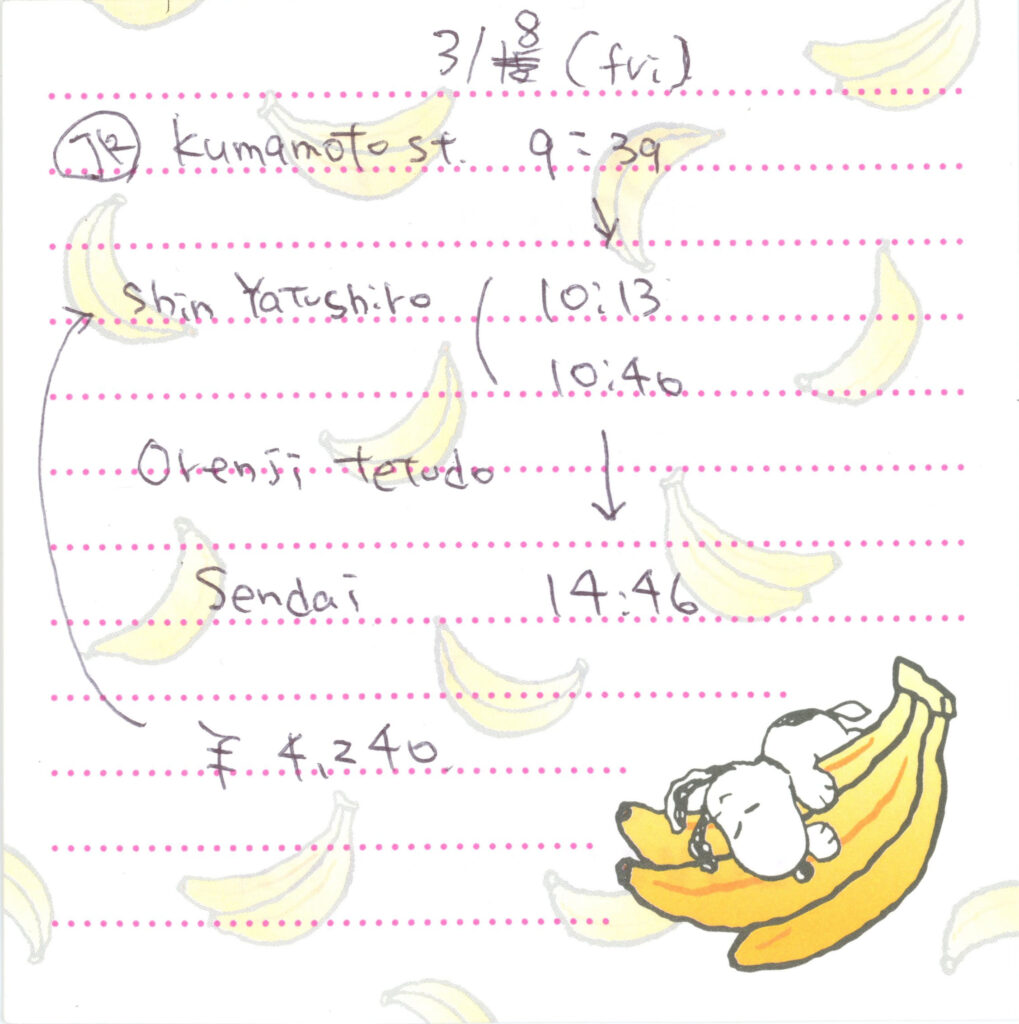 3/8 (fri)
JR Kumamoto st. 9:39
↓
Shin Yatushiro 10:13
10:40
Orenji tetudo ↓
Sendai 14:46
¥ 4,240.